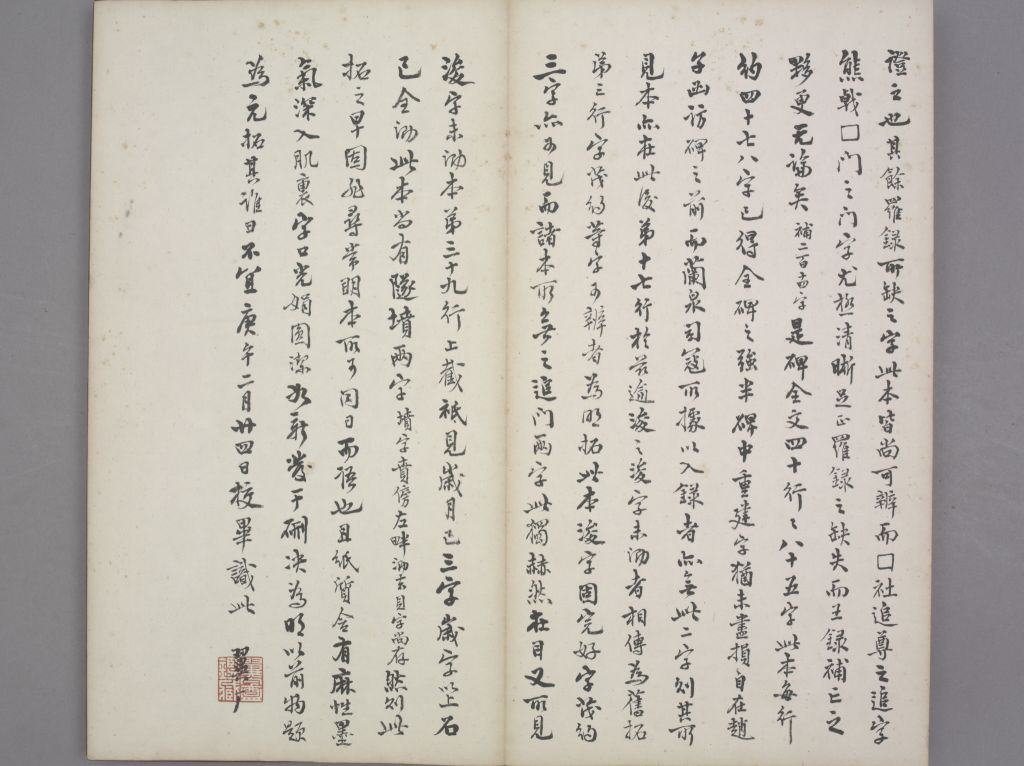 證之也其餘羅錄所缺之字此本皆尚可辨而口社追尊之追字
熊戟口門之門字尤極清晰足正羅錄之缺失而王錄補亡之
夥更无論矣補二百字是碑全文四十行々八十五字此本每行
約四十七八字已得全碑之強半碑中重建字猶未盡損自在趙
子函訪碑之前而蘭泉司寇所據以入錄者亦無此二字則其所
見本亦在此後第十七行於茲逾浚之浚字未泐者相傳為舊拓
第三行字茂約等字可辨者為明拓此本浚字固完好字茂約
三字亦可見而諸本所無之追門兩字此獨赫然在目又所見
浚字未泐本第三十九行上截祇見歲月已三字歲字以上石
已全泐此本尚有隧墳兩字墳字賁傍左畔泐去貝字尚存然則此
拓之早固非尋常明本所可同日而語也且紙質含有麻性墨
氣深入肌裏字口光娟圓潔如新發于硎决為明以前物題
為元拓其誰曰不宜庚午二月廿四日校畢識此